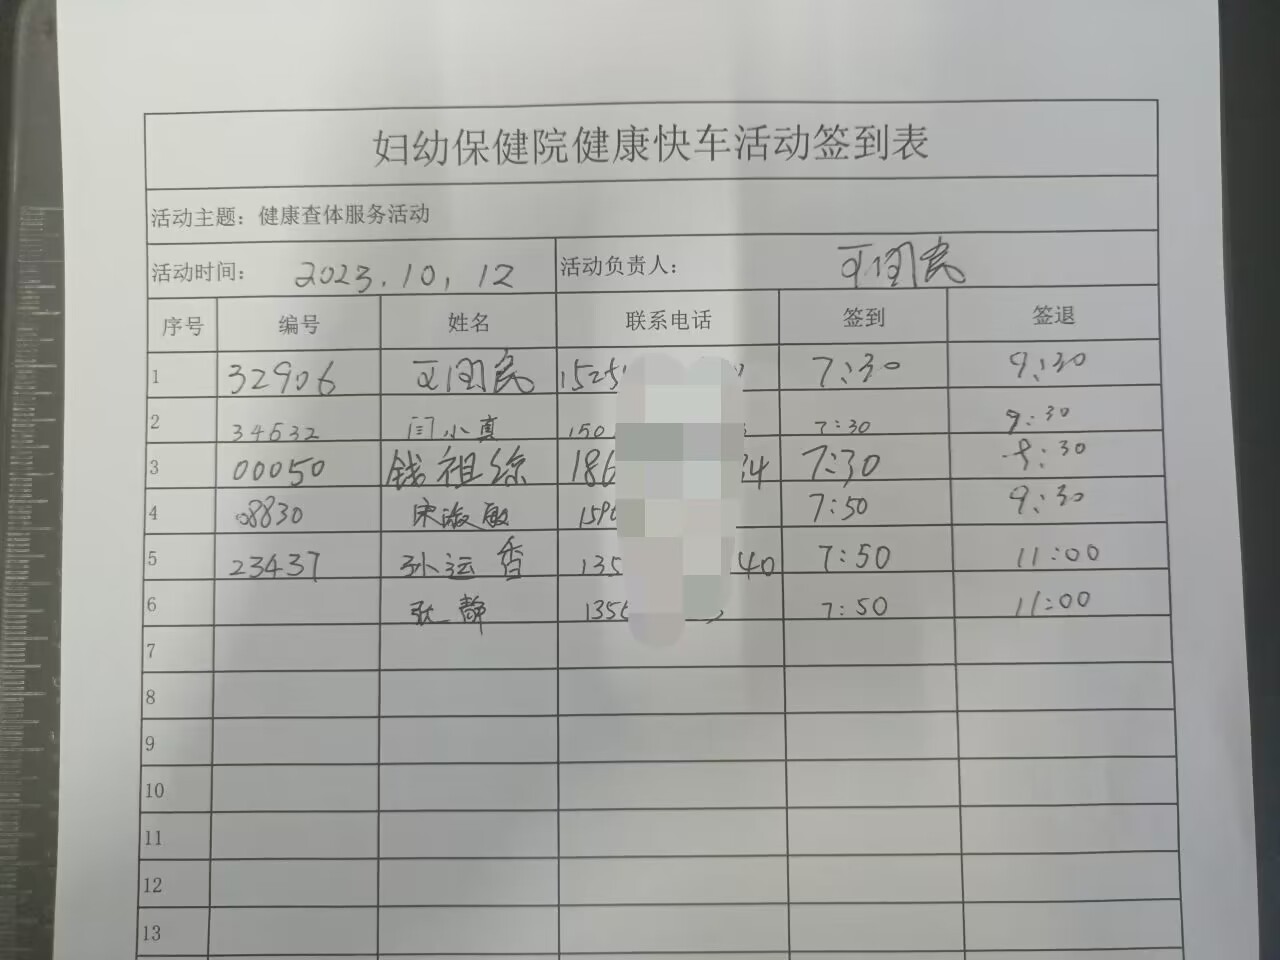 妇幼保健院健康快车活动签到表
活动主题：健康查体服务活动
活动时间： 2023.10.12 活动负责人：
序号 编号 姓名 联系电话 签到 签退
1 32906 1525 7:30 9:30
2 34632 闫小真 150 7:30 9:30
3 00050 钱祖综 186 34 7:30 9:30
4 08830 宋淑敏 159 7:50 9:30
5 23437 孙运香 135 40 7:50 11:00
6 张静 135 7:50 11:00
7
8
9
10
11
12
13